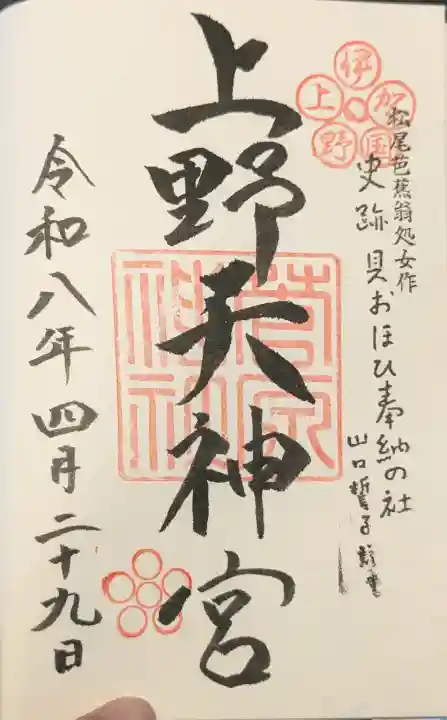 伊賀国上野
松尾芭蕉翁処女作
史跡 貝おほひ奉納の社
山口誓子
上野天神宮
菅原神社
令和八年四月二十九日